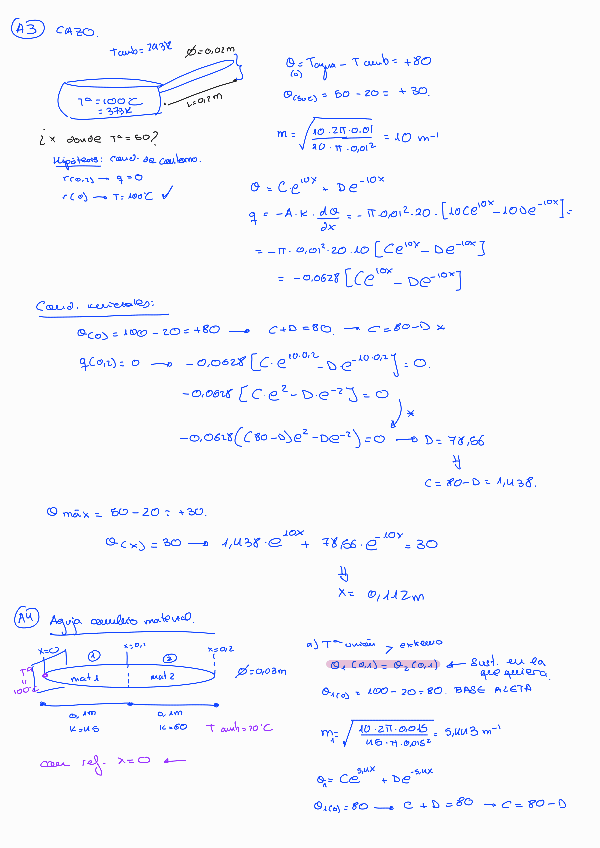 A3 CAZO.
Tamb=293K
Ø=0,02m
Tª=100ºC
=373K
L=0,2m
¿x donde Tª=50?
Hipótesis: cond. de contorno.
r(0,2) → q=0
r(0) → T=100ºC ✓
θ(0) = Tagua - Tamb = +80
θ(50ºC) = 50-20 = +30.
m = √(10·2π·0.01 / 20·π·0,01²) = 10 m⁻¹
θ = Ce^10x + De^-10x
q = -A·K·dθ/dx = -π·0,01²·20·[10Ce^10x - 10De^-10x] =
= -π·0,01²·20·10 [Ce^10x - De^-10x]
= -0,0628 [Ce^10x - De^-10x]
Cond. iniciales:
θ(0) = 100-20 = +80 → C+D=80. → C=80-D *
q(0,2)=0 → -0,0628 [C·e^10·0,2 - De^-10·0,2] = 0.
-0,0628 [C·e² - D·e⁻²] = 0
*
-0,0628 ((80-D)e² - De⁻²) = 0 → D = 78,56
⇓
C = 80-D = 1,438.
θ máx = 50-20 = +30.
θ(x) = 30 → 1,438·e^10x + 78,56·e^-10x = 30
⇓
x = 0,112m
A4 Aguja cambio material.
x=0
x=0,1
x=0,2
① ②
Tª
100ºC
mat 1 mat 2
Ø=0,03m
0,1m 0,1m
K=45 K=50 Tamb=20ºC
con ref. x=0 ←
a) Tª unión y extremo
θ1(0,1) = θ2(0,1) ← Sust. en la que quiera.
θ1(0) = 100-20 = 80. BASE ALETA
m1 = √(10·2π·0.015 / 45·π·0.015²) = 5,443 m⁻¹
θ1 = Ce^5,4x + De^-5,4x
θ1(0) = 80 → C + D = 80 → C = 80-D